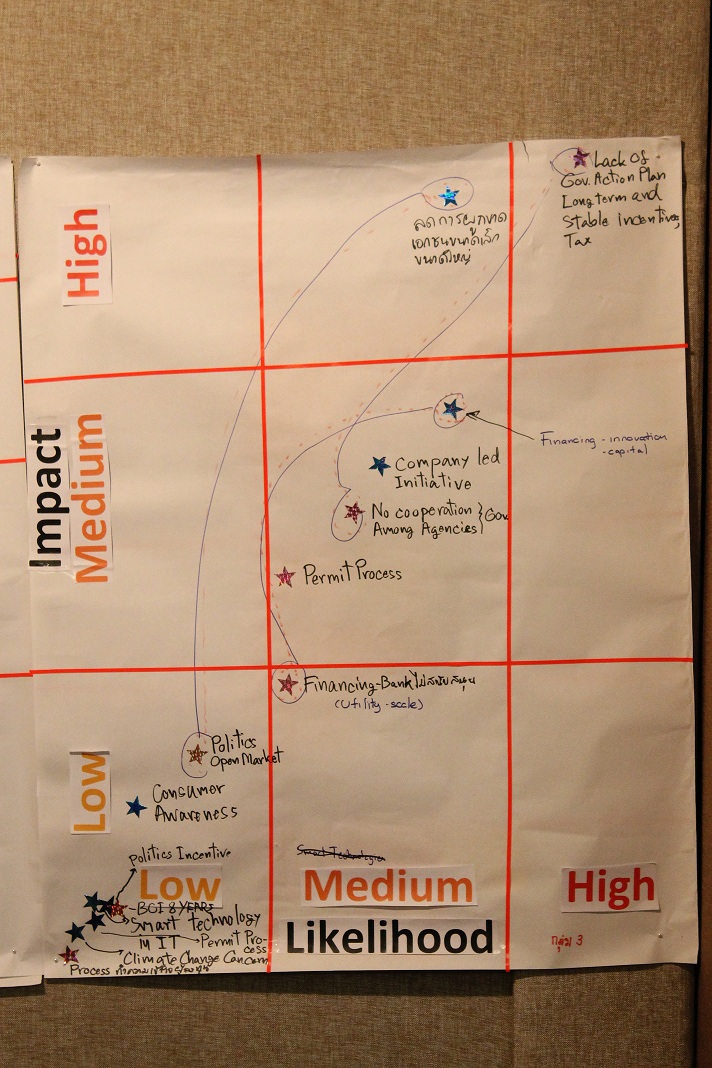 High
ลดการผูกขาด
เอกชนขนาดเล็ก
ขนาดใหญ่
Lack Of
Gov. Action Plan
Long term and
Stable incentives,
Tax
Impact
Medium
Financing - innovation
- capital
Company led
Initiative
No cooperation } Gov.
Among Agencies
Permit Process
Financing-Bank ไม่สนับสนุน
(Utility-scale)
Low
Politics
Open Market
Consumer
Awareness
Politics Incentive
Smart Technologies
Low
Medium
High
BOI 8 YEARS
Smart technology
IT
Permit Process
Climate Change Concern
Process
Likelihood
กลุ่ม 3